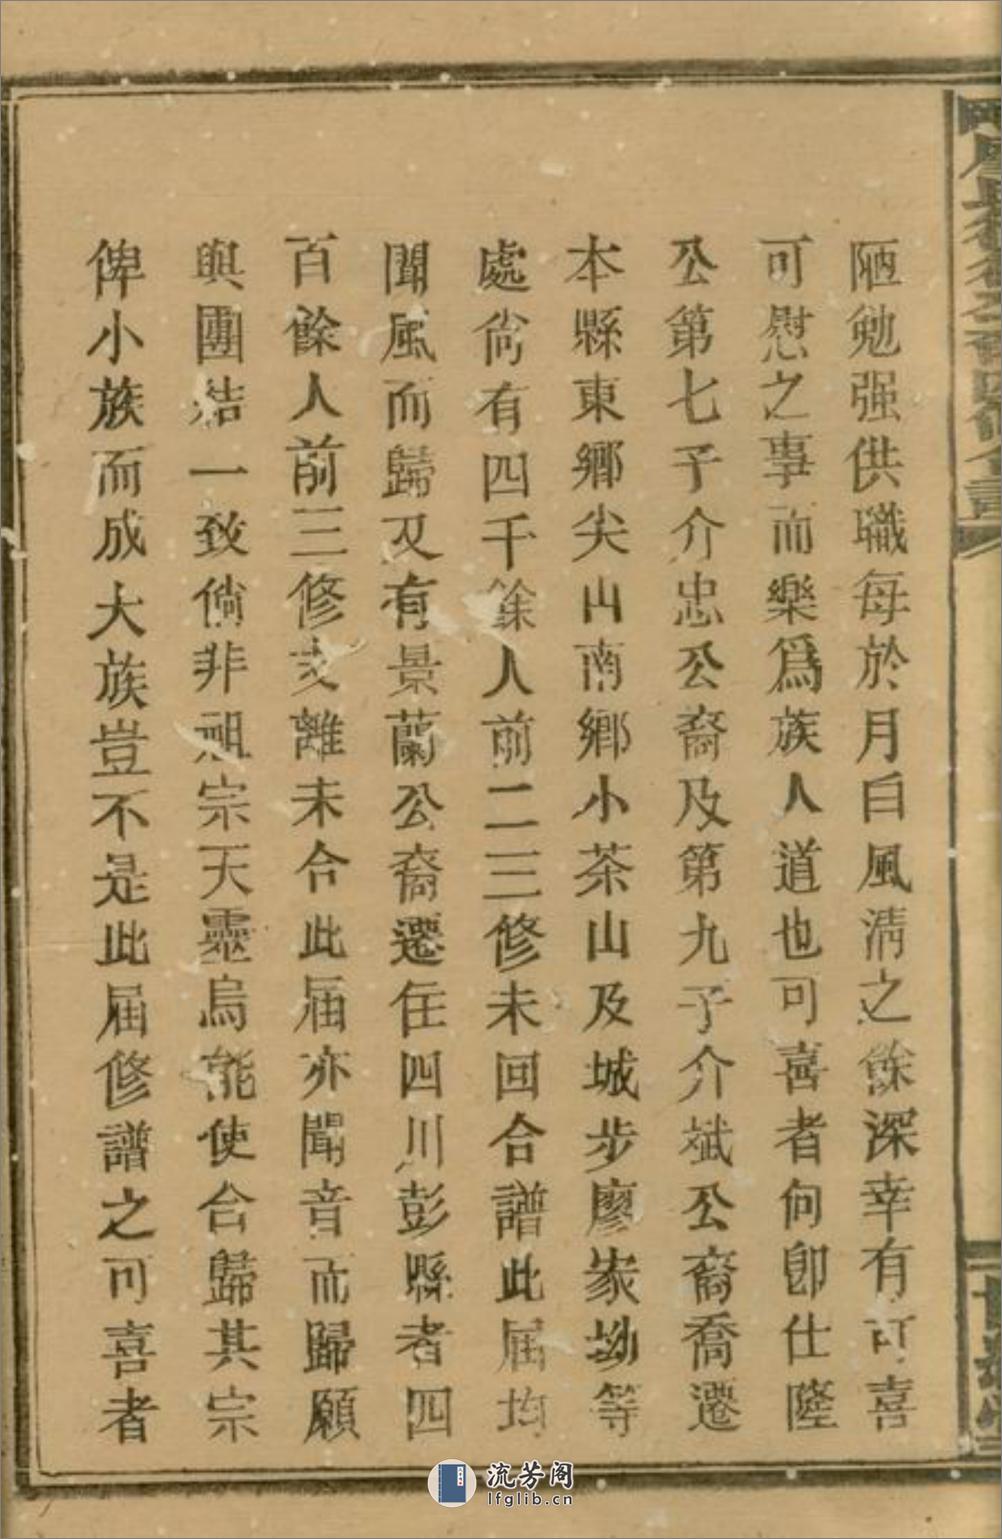 陋勉强供職每於月白風淸之餘深幸有可喜
可慰之事而樂爲族人道也可喜者何卽仕隆
公第七子介忠公裔及第九子介斌公裔喬遷
本縣東鄉尖山南鄉小茶山及城步廖家坳等
處尙有四千餘人前二三修未回合譜此屆均
聞風而歸又有景蘭公裔遷住四川彭縣者四
百餘人前三修支離未合此屆亦聞音而歸願
與團結一致倘非祖宗天靈烏能使合歸其宗
俾小族而成大族豈不是此屆修譜之可喜者
流芳阁
lfglib.cn